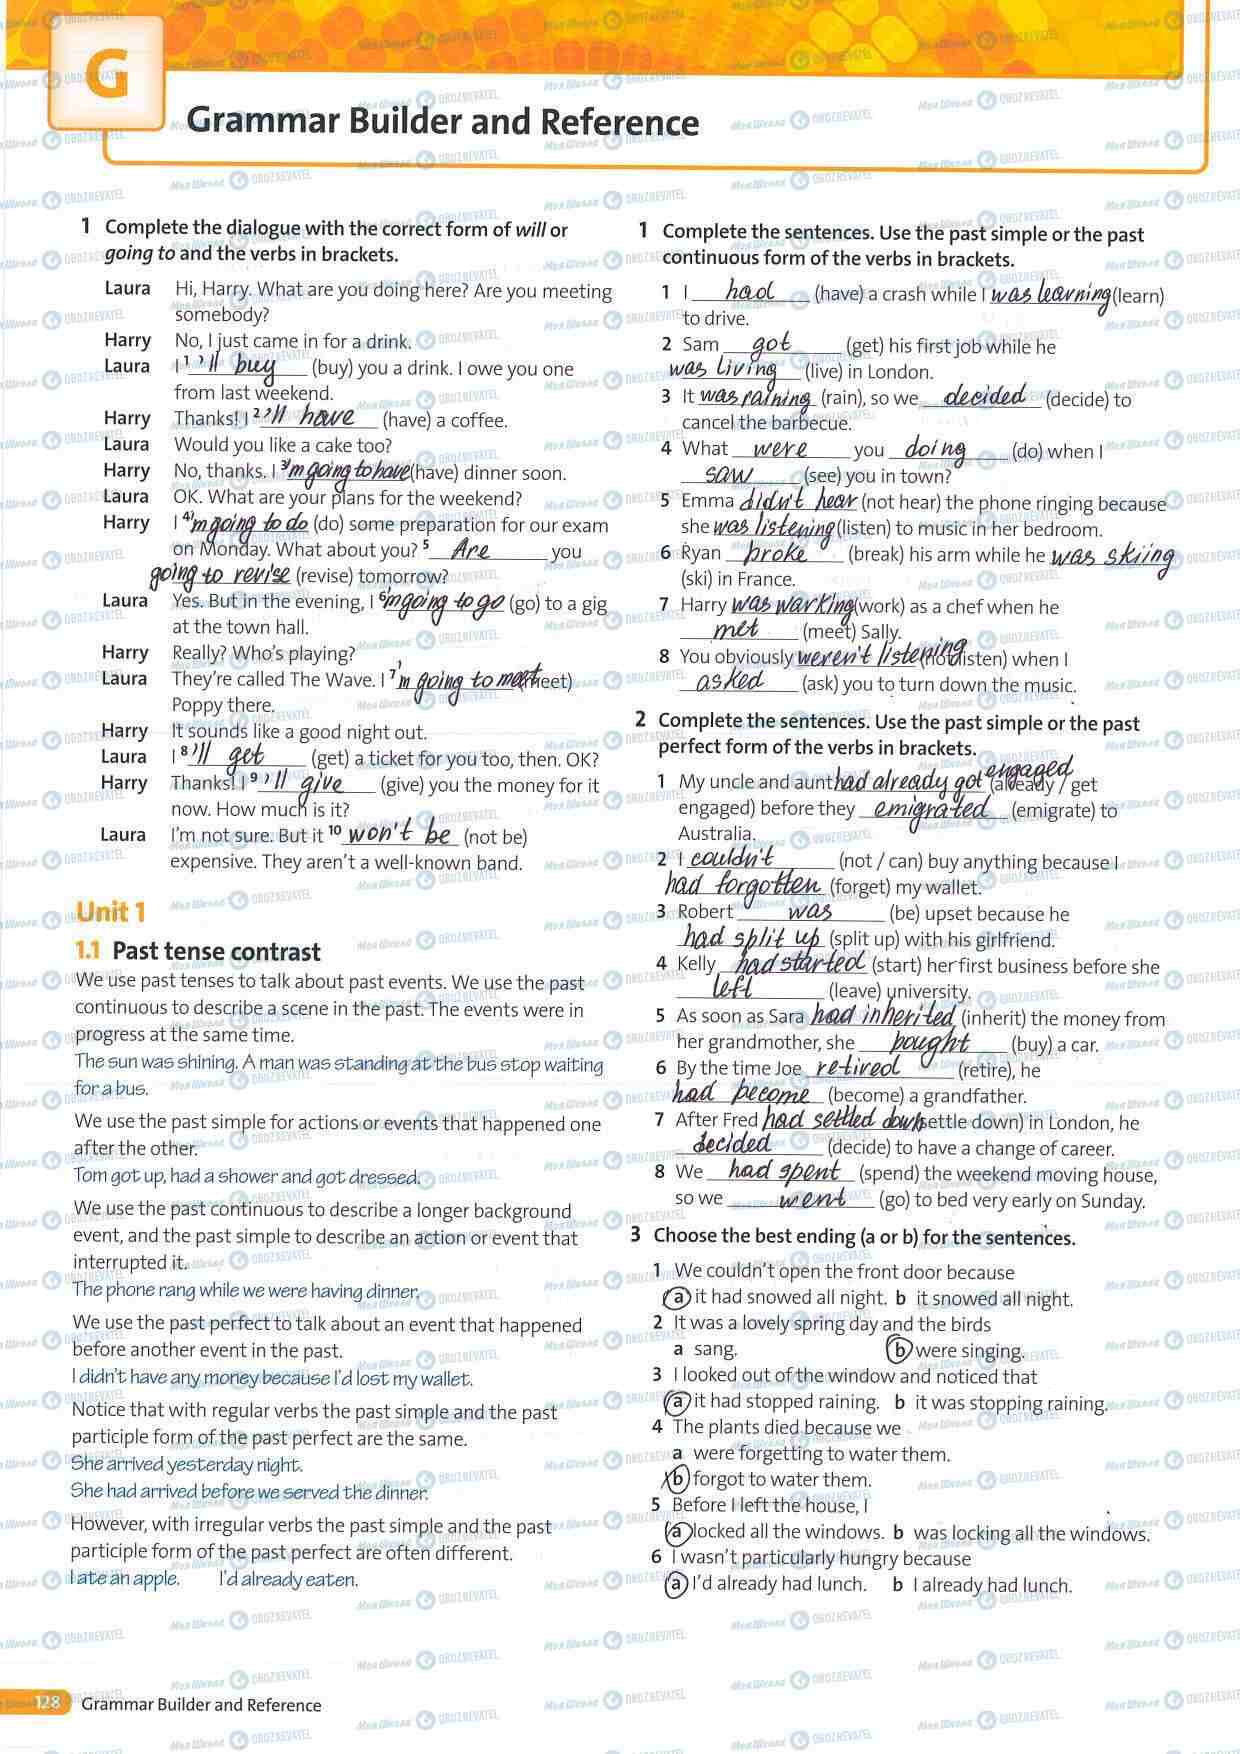 G
Grammar Builder and Reference
1 Complete the dialogue with the correct form of will or
going to and the verbs in brackets.
Laura Hi, Harry. What are you doing here? Are you meeting
somebody?
Harry No, I just came in for a drink.
Laura I 1 'll buy (buy) you a drink. I owe you one
from last weekend.
Harry Thanks! I 2 'll have (have) a coffee.
Laura Would you like a cake too?
Harry No, thanks. I 3 'm going to have (have) dinner soon.
Laura OK. What are your plans for the weekend?
Harry I 4 'm going to do (do) some preparation for our exam
on Monday. What about you? 5 Are you
going to revise (revise) tomorrow?
Laura Yes. But in the evening, I 6 'm going to go (go) to a gig
at the town hall.
Harry Really? Who's playing?
Laura They're called The Wave. I 7 'm going to meet (meet)
Poppy there.
Harry It sounds like a good night out.
Laura I 8 'll get (get) a ticket for you too, then. OK?
Harry Thanks! I 9 'll give (give) you the money for it
now. How much is it?
Laura I'm not sure. But it 10 won't be (not be)
expensive. They aren't a well-known band.
Unit 1
1.1 Past tense contrast
We use past tenses to talk about past events. We use the past
continuous to describe a scene in the past. The events were in
progress at the same time.
The sun was shining. A man was standing at the bus stop waiting
for a bus.
We use the past simple for actions or events that happened one
after the other.
Tom got up, had a shower and got dressed.
We use the past continuous to describe a longer background
event, and the past simple to describe an action or event that
interrupted it.
The phone rang while we were having dinner.
We use the past perfect to talk about an event that happened
before another event in the past.
I didn't have any money because I'd lost my wallet.
Notice that with regular verbs the past simple and the past
participle form of the past perfect are the same.
She arrived yesterday night.
She had arrived before we served the dinner.
However, with irregular verbs the past simple and the past
participle form of the past perfect are often different.
I ate an apple. I'd already eaten.
1 Complete the sentences. Use the past simple or the past
continuous form of the verbs in brackets.
1 I had (have) a crash while I was learning (learn)
to drive.
2 Sam got (get) his first job while he
was living (live) in London.
3 It was raining (rain), so we decided (decide) to
cancel the barbecue.
4 What were you doing (do) when I
saw (see) you in town?
5 Emma didn't hear (not hear) the phone ringing because
she was listening (listen) to music in her bedroom.
6 Ryan broke (break) his arm while he was skiing
(ski) in France.
7 Harry was warking (work) as a chef when he
met (meet) Sally.
8 You obviously weren't listening (not listen) when I
asked (ask) you to turn down the music.
2 Complete the sentences. Use the past simple or the past
perfect form of the verbs in brackets.
1 My uncle and aunt had already got engaged (already / get
engaged) before they emigrated (emigrate) to
Australia.
2 I couldn't (not / can) buy anything because I
had forgotten (forget) my wallet.
3 Robert was (be) upset because he
had split up (split up) with his girlfriend.
4 Kelly had started (start) her first business before she
left (leave) university.
5 As soon as Sara had inherited (inherit) the money from
her grandmother, she bought (buy) a car.
6 By the time Joe retired (retire), he
had become (become) a grandfather.
7 After Fred had settled down (settle down) in London, he
decided (decide) to have a change of career.
8 We had spent (spend) the weekend moving house,
so we went (go) to bed very early on Sunday.
3 Choose the best ending (a or b) for the sentences.
1 We couldn't open the front door because
a it had snowed all night. b it snowed all night.
2 It was a lovely spring day and the birds
a sang. b were singing.
3 I looked out of the window and noticed that
a it had stopped raining. b it was stopping raining.
4 The plants died because we
a were forgetting to water them.
b forgot to water them.
5 Before I left the house, I
a locked all the windows. b was locking all the windows.
6 I wasn't particularly hungry because
a I'd already had lunch. b I already had lunch.
128 Grammar Builder and Reference
Моя Школа OBOZREVATEL